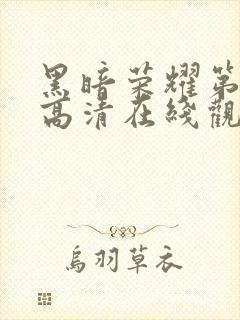 黑暗荣耀第
高清在线觀
烏羽草衣